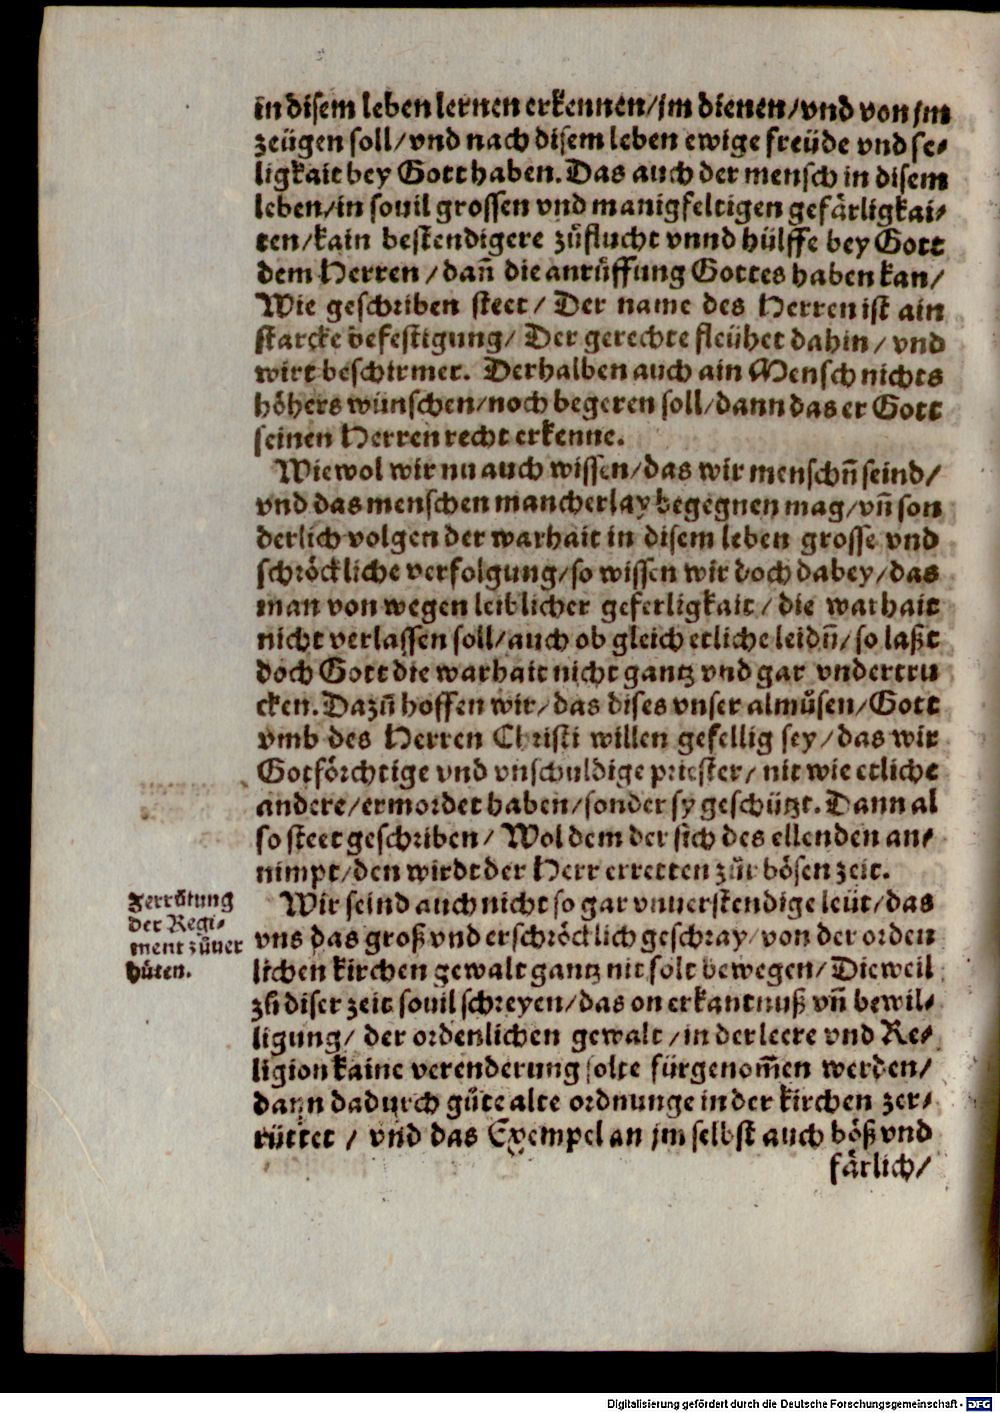 in disem leben lernen erkennen/jm dienen/vnd von jm
zeügen soll/vnd nach disem leben ewige freüde vnd se⸗
ligkait bey Gott haben. Das auch der mensch in disem
leben/in souil grossen vnd manigfeltigen gefärligkai⸗
ten/kain bestendigere zůflucht vnnd hülffe bey Gott
dem Herren/dañ die anrůffung Gottes haben kan/
Wie geschriben steet/ Der name des Herren ist ain
starcke befestigung/ Der gerechte fleühet dahin/ vnd
wirt beschirmet. Derhalben auch ain Mensch nichts
höhers wünschen/noch begeren soll/dann das er Gott
seinen Herren recht erkenne.
Wiewol wir nu auch wissen/das wir menschñ seind/
vnd das menschen mancherlay begegnen mag/vñ son
derlich volgen der warhait in disem leben grosse vnd
schröckliche verfolgung/so wissen wir doch dabey/das
man von wegen leiblicher geferligkait/die warhait
nicht verlassen soll/auch ob gleich etliche leidñ/so laßt
doch Gott die warhait nicht gantz vnd gar vndertru
cken. Dazů hoffen wir/das dises vnser almůsen/Gott
vmb des Herren Christi willen gefellig sey/das wir
Gotförchtige vnd vnschuldige priester/nit wie etliche
andere/ermordet haben/sonder sy geschützt. Dann al
so steet geschriben/ Wol dem der sich des ellenden an⸗
nimpt/den wirdt der Herr erretten zůr bösen zeit.
Zerrütung
der Regi⸗
ment zůuer
hüten.
Wir seind auch nicht so gar vnuerstendige leüt/das
vns das groß vnd erschröcklich geschray/von der orden
lichen kirchen gewalt gantz nit solt bewegen/Dieweil
zů diser zeit souil schreyen/das on erkantnuß vñ bewil⸗
ligung/ der ordenlichen gewalt/in der leere vnd Re⸗
ligion kaine verenderung solte fürgenom̃en werden/
dann dadurch gůte alte ordnunge in der kirchen zer⸗
rüttet/ vnd das Exempel an jm selbst auch böß vnd
färlich/
Digitalisierung gefördert durch die Deutsche Forschungsgemeinschaft - DFG